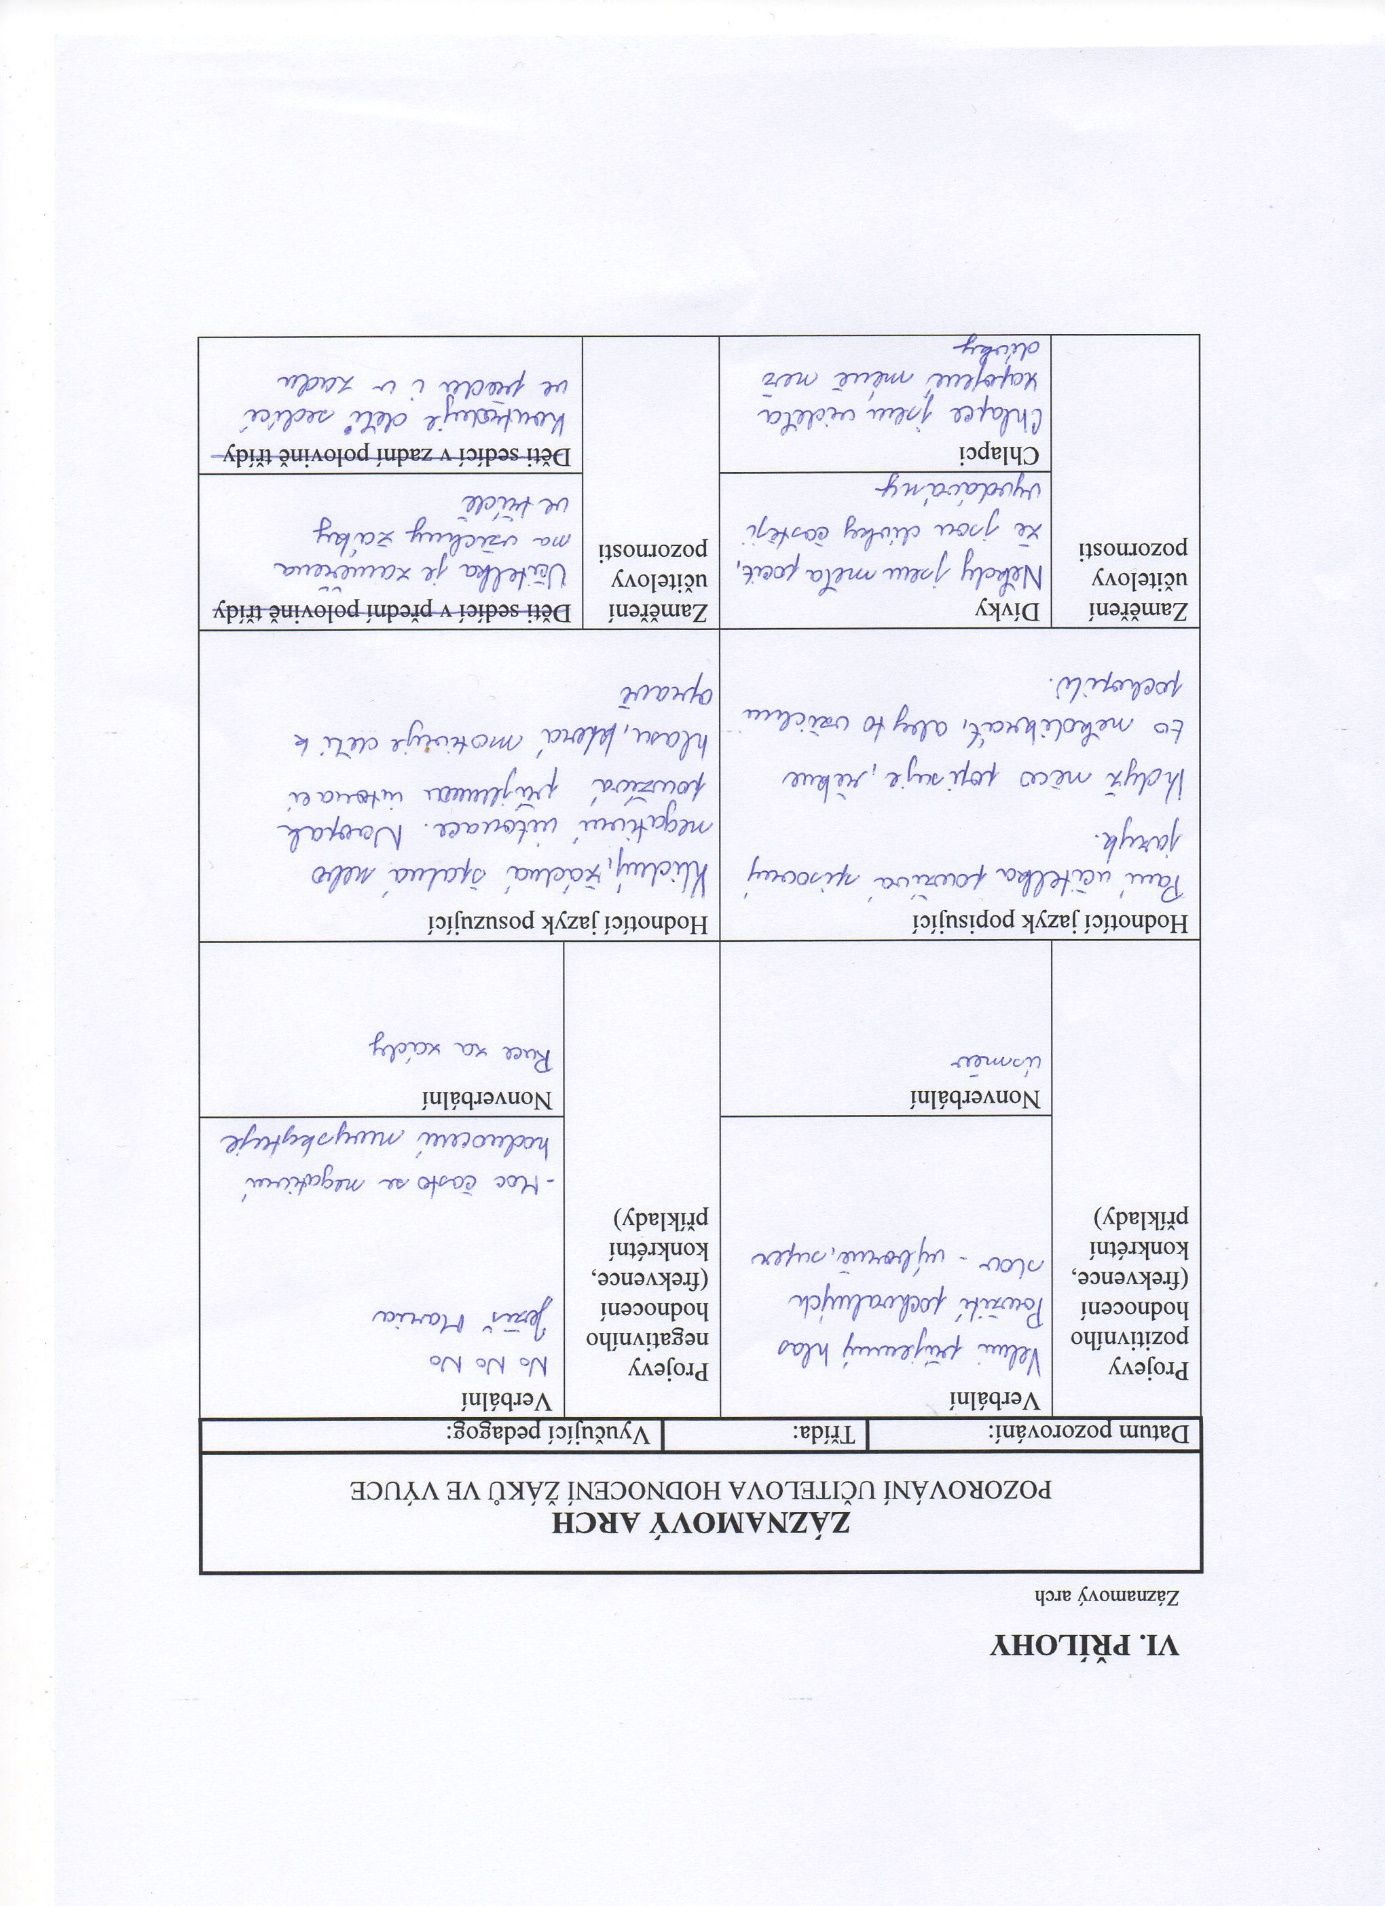 VI. PŘÍLOHY
Záznamový arch
ZÁZNAMOVÝ ARCH
POZOROVÁNÍ UČITELOVA HODNOCENÍ ŽÁKŮ VE VÝUCE
Datum pozorování:
Třída:
Vyučující pedagog:
Projevy
pozitivního
hodnocení
(frekvence,
konkrétní
příklady)
Verbální
Velmi příjemný hlas
Použití pochvalných
slov - výborně, super
Nonverbální
úsměv
Projevy
negativního
hodnocení
(frekvence,
konkrétní
příklady)
Verbální
No No No
Ježiš Maria
- Moc často se negativní
hodnocení nevyskytuje
Nonverbální
Ruce za zády
Hodnotící jazyk popisující
Paní učitelka používá spisovný
jazyk.
Když něco popisuje, řekne
to několikrát, aby to všichni
pochopili.
Hodnotící jazyk posuzující
Klidný, žádná špatná nebo
negativní intonace. Naopak
používá příjemnou intonaci
hlasu, která motivuje děti k
opravě
Zaměření
učitelovy
pozornosti
Dívky
Někdy jsem měla pocit,
že jsou dívky častěji
vyvolávány
Chlapci
Chlapce jsem viděla
zapojené méně než
dívky
Zaměření
učitelovy
pozornosti
Děti sedící v přední polovině třídy
Učitelka je zaměřena
na všechny žáky
ve třídě
Děti sedící v zadní polovině třídy
Kontroluje děti sedící
ve předu i v zadu